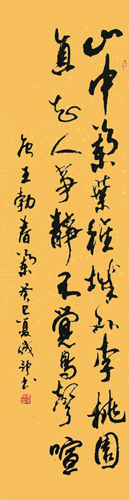 山中蘭葉徑城外李桃園
直知人事靜不覺鳥聲喧
唐王勃春莊癸巳夏書